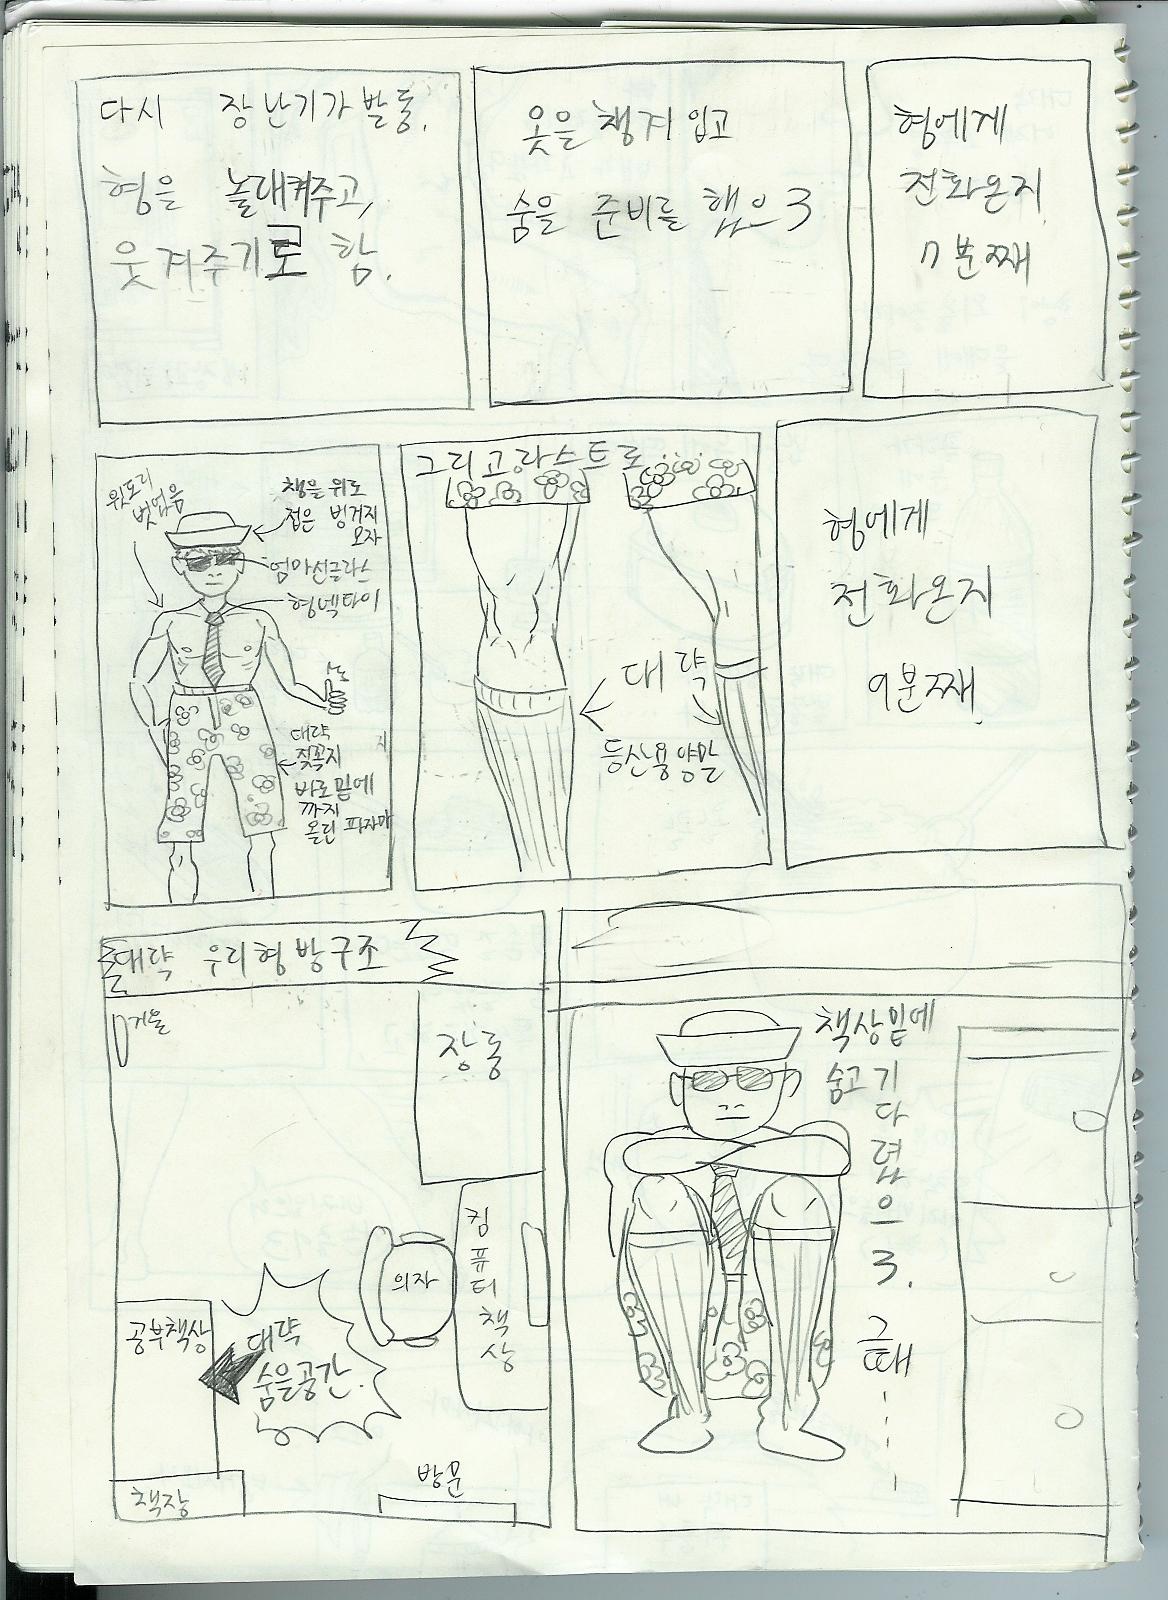 다시 장난기가 발동.
형을 놀래켜주고,
웃겨주기로 함.
옷을 챙겨 입고
숨을 준비를 했으3
형에게
전화온지
7분째
윗도리
벗었음
챙을 위로
접은 벙거지
모자
엄마선글라스
형넥타이
대략
젖꼭지
바로밑에
까지
올린 파자마
그리고 라스트로..
대략
등산용양말
형에게
전화온지
9분째.
대략 우리형 방구조
거울
장농
컴퓨터책상
의자
공부책상
대략
숨은공간.
책장
방문
책상밑에
숨고 기다렸으3.
그때